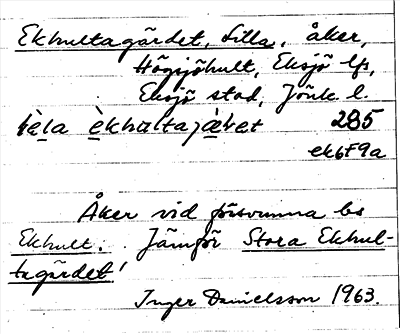 Ekhultagärdet, Lilla, åker,
Högsjöhult, Eksjö lfs,
Eksjö stad, Jönk. l.
lèla èkhultajàret 285
ek6F9a
Åker vid försvunna bs
Ekhult. Jämför Stora Ekhul-
tagärdet!
Inger Danielsson 1963.